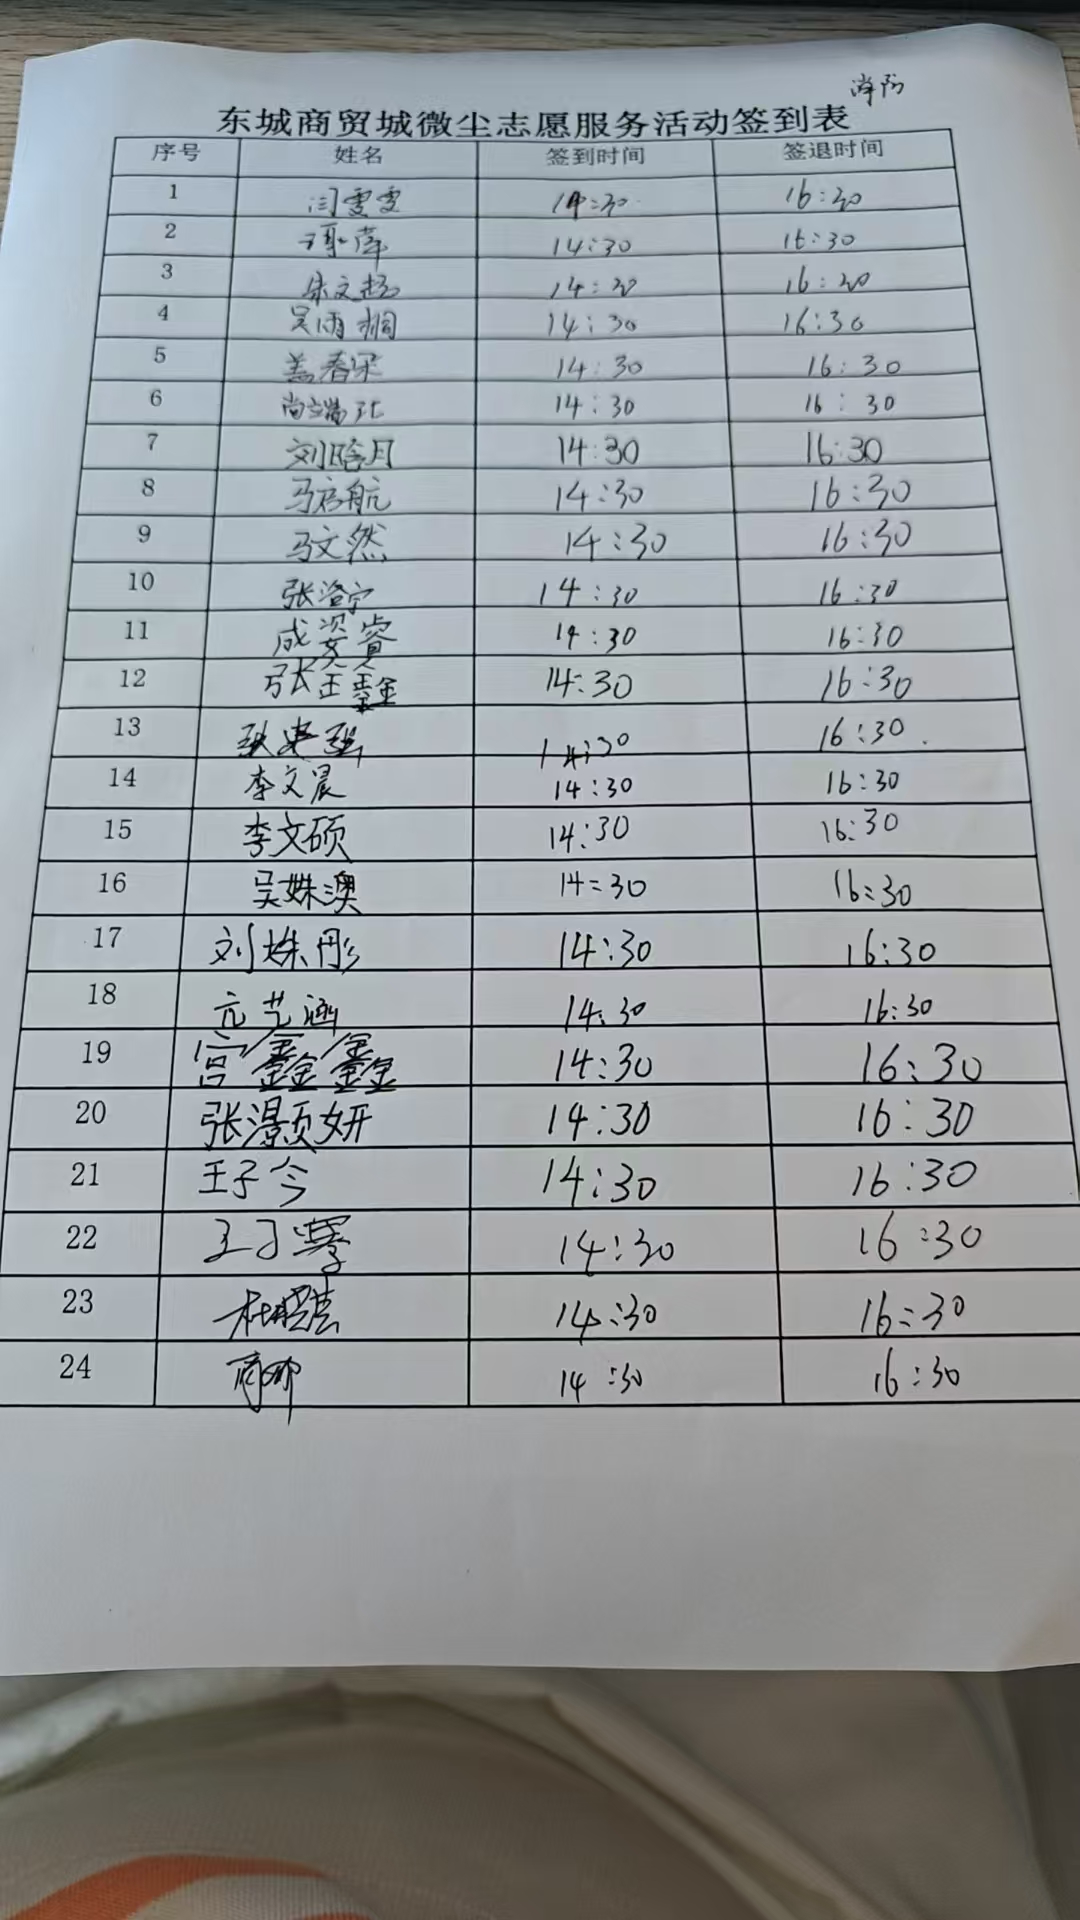 消防
东城商贸城微尘志愿服务活动签到表
序号 姓名 签到时间 签退时间
1 闫雯雯 14:30 16:30
2 14:30 16:30
3 朱文 14:30 16:30
4 吴雨桐 14:30 16:30
5 盖春 14:30 16:30
6 尚端 14:30 16:30
7 刘晗月 14:30 16:30
8 马启航 14:30 16:30
9 马文然 14:30 16:30
10 张澄宁 14:30 16:30
11 成姿睿 14:30 16:30
12 张玉鑫 14:30 16:30
13 14:30 16:30
14 李文晨 14:30 16:30
15 李文硕 14:30 16:30
16 吴姝澳 14:30 16:30
17 刘姝彤 14:30 16:30
18 亓艺涵 14:30 16:30
19 宫鑫鑫 14:30 16:30
20 张灏妍 14:30 16:30
21 王子今 14:30 16:30
22 王 14:30 16:30
23 杜 14:30 16:30
24 14:30 16:30